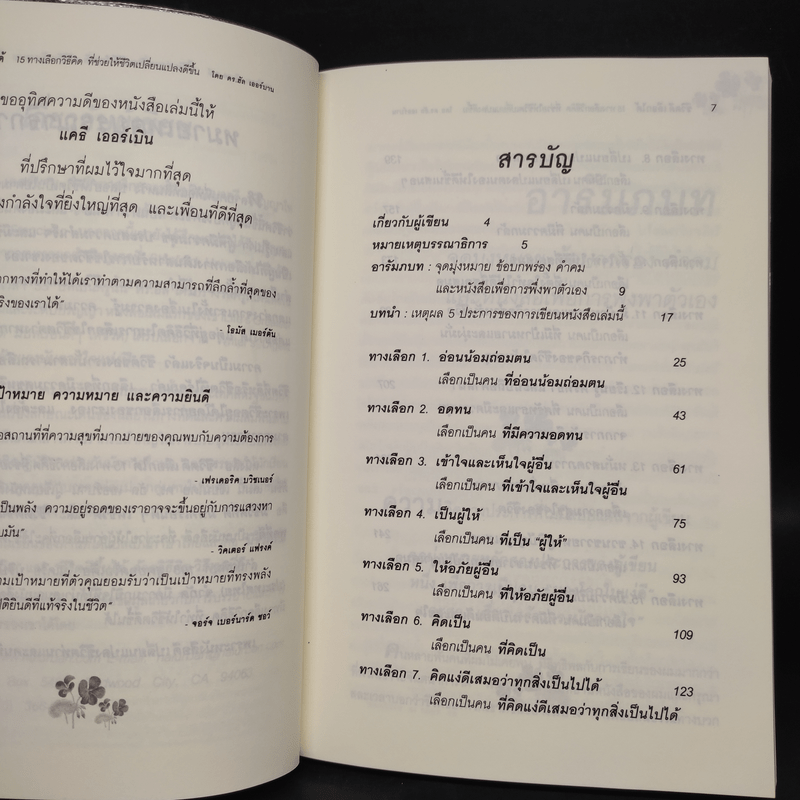 15 ทางเลือกวิธีคิด ที่ช่วยให้ชีวิตเปลี่ยนแปลงดีขึ้น โดย ดร.ฮัล เออร์บาน
ขออุทิศความดีของหนังสือเล่มนี้ให้
แคธี เออร์เบิน
ที่ปรึกษาที่ผมไว้ใจมากที่สุด
กำลังใจที่ยิ่งใหญ่ที่สุด และเพื่อนที่ดีที่สุด
ทางที่ทำให้ได้เราทำตามความสามารถที่ลึกล้ำที่สุดของ
ริงของเราได้"
- โธมัส เมอร์ตัน
เป้าหมาย ความหมาย และความยินดี
สถานที่ที่ความสุขที่มากมายของคุณพบกับความต้องการ
- เฟรเดอริค บวิชเนอร์
เป็นพลัง ความอยู่รอดของเราอาจจะขึ้นอยู่กับการแสวงหา
- วิคเตอร์ แฟรงค์
เป้าหมายที่ตัวคุณยอมรับว่าเป็นเป้าหมายที่ทรงพลัง
ยินดีที่แท้จริงในชีวิต"
- จอร์จ เบอร์นาร์ด ชอว์
7
สารบัญ
เกี่ยวกับผู้เขียน 4
หมายเหตุบรรณาธิการ 5
อารัมภบท : จุดมุ่งหมาย ข้อบกพร่อง คำคม
และหนังสือเพื่อการพึ่งพาตัวเอง 9
บทนำ : เหตุผล 5 ประการของการเขียนหนังสือเล่มนี้ 17
ทางเลือก 1. อ่อนน้อมถ่อมตน 25
เลือกเป็นคน ที่อ่อนน้อมถ่อมตน
ทางเลือก 2. อดทน 43
เลือกเป็นคน ที่มีความอดทน
ทางเลือก 3. เข้าใจและเห็นใจผู้อื่น 61
เลือกเป็นคน ที่เข้าใจและเห็นใจผู้อื่น
ทางเลือก 4. เป็นผู้ให้ 75
เลือกเป็นคน ที่เป็น "ผู้ให้"
ทางเลือก 5. ให้อภัยผู้อื่น 93
เลือกเป็นคน ที่ให้อภัยผู้อื่น
ทางเลือก 6. คิดเป็น 109
เลือกเป็นคน ที่คิดเป็น
ทางเลือก 7. คิดแง่ดีเสมอว่าทุกสิ่งเป็นไปได้ 123
เลือกเป็นคน ที่คิดแง่ดีเสมอว่าทุกสิ่งเป็นไปได้